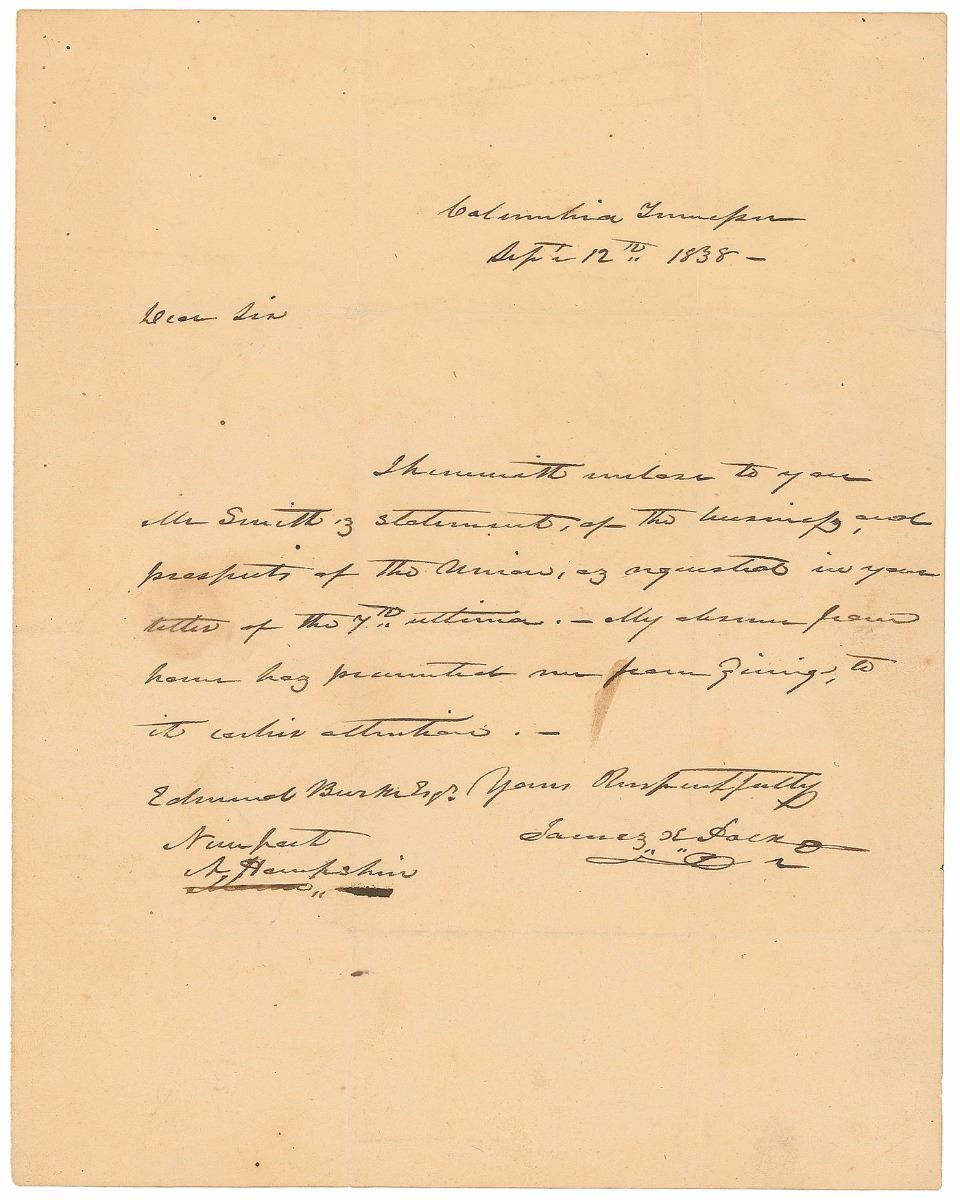 Columbia Tennessee
Sept'r 12th 1838 —
Dear Sir
I herewith enclose to you
Mr Smith's statement, of the business, and
prospects of the Union, as requested in your
letter of the 7th ultimo. — My absence from
home has prevented me from giving, to
it earlier attention. —
Edmund Burke Esqr. Yours Respectfully
Newport
James K Polk
N. Hampshire